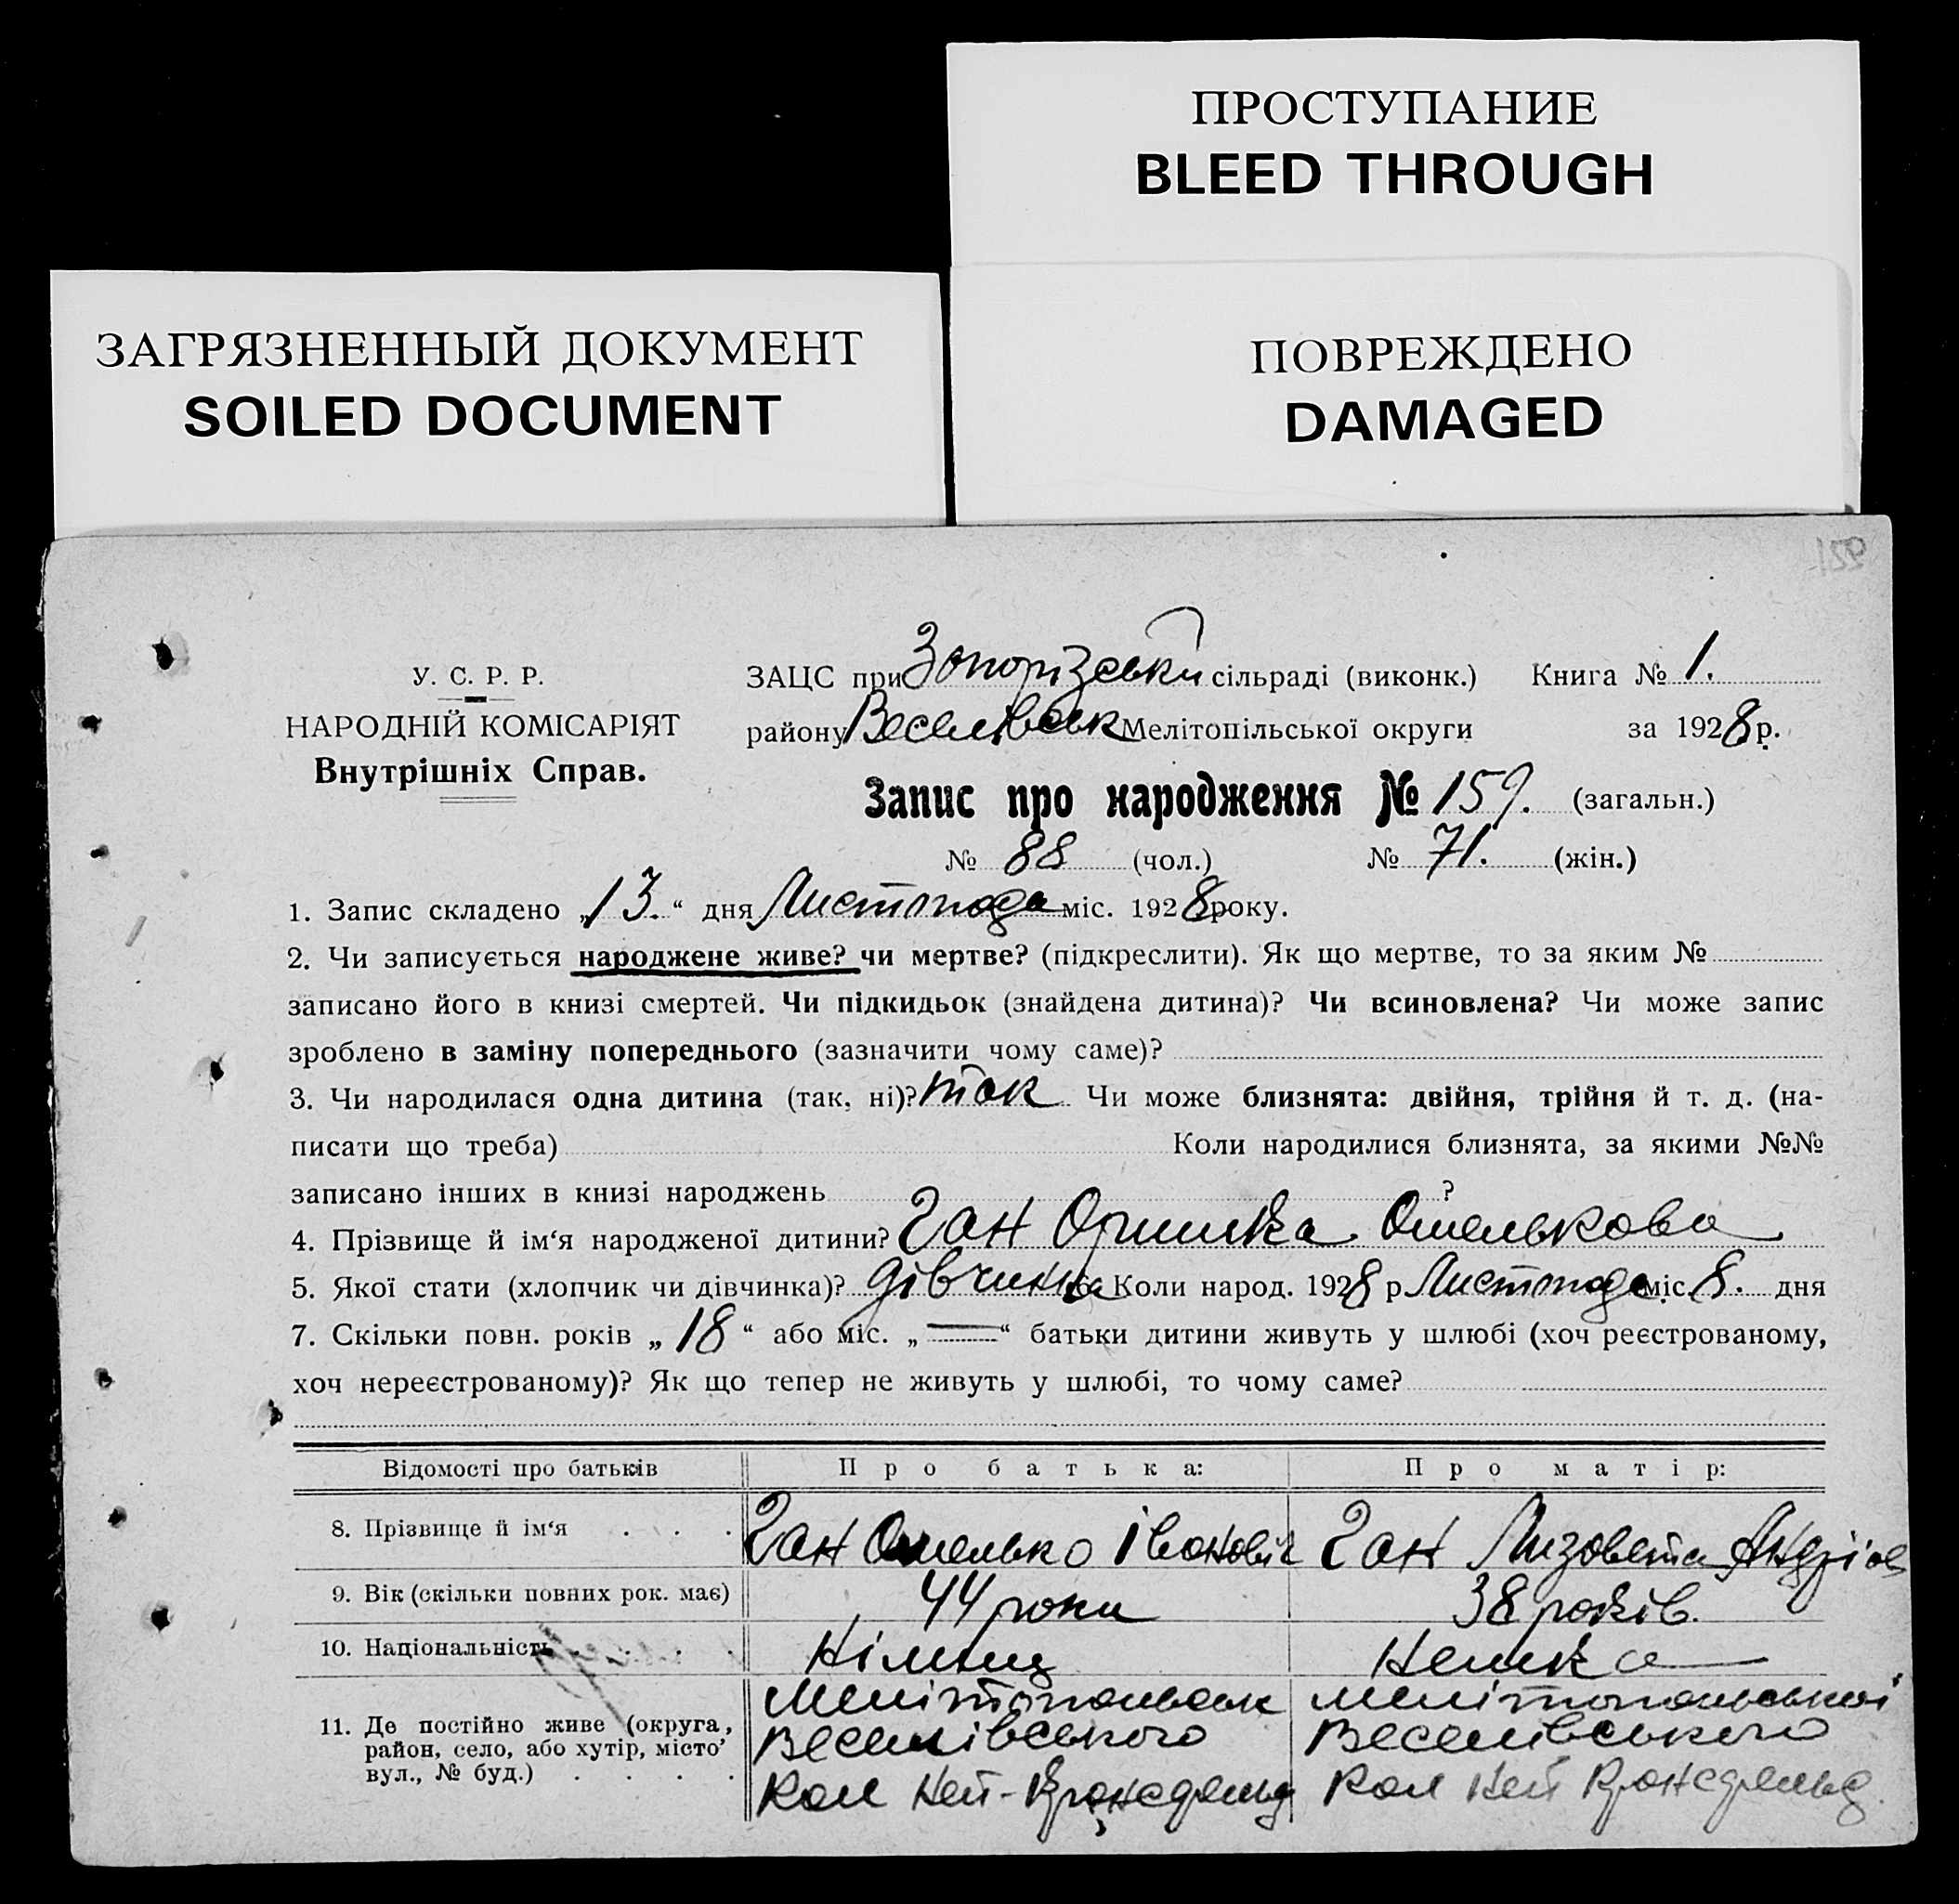 ПРОСТУПАНИЕ
BLEED THROUGH
ЗАГРЯЗНЕННЫЙ ДОКУМЕНТ
SOILED DOCUMENT
ПОВРЕЖДЕНО
DAMAGED
У. С. Р. Р.
НАРОДНІЙ КОМІСАРІЯТ
Внутрішніх Справ.
ЗАЦС при Запорізській сільраді (виконк.) Книга № 1.
району Веселівськ Мелітопільської округи за 1928 р.
Запис про народження № 159. (загальн.)
№ 88 (чол.) № 71. (жін.)
1. Запис складено „13.“ дня Листопада міс. 1928 року.
2. Чи записується народжене живе? чи мертве? (підкреслити). Як що мертве, то за яким №
записано його в книзі смертей. Чи підкидьок (знайдена дитина)? Чи всиновлена? Чи може запис
зроблено в заміну попереднього (зазначити чому саме)?
3. Чи народилася одна дитина (так, ні)? так Чи може близнята: двійня, трійня й т. д. (на-
писати що треба) Коли народилися близнята, за якими №№
записано інших в книзі народжень ?
4. Прізвище й ім‘я народженої дитини? Ган Оришка Омелькова
5. Якої стати (хлопчик чи дівчинка)? дівчинка Коли народ. 1928 р Листопада міс. 8. дня
7. Скільки повн. років „18“ або міс. „—“ батьки дитини живуть у шлюбі (хоч реєстрованому,
хоч нереєстрованому)? Як що тепер не живуть у шлюбі, то чому саме?
Відомості про батьків Про батька: Про матір:
8. Прізвище й ім‘я . . . Ган Омелько Іванович Ган Лизовета Андріов
9. Вік (скільки повних рок. має) 44 роки 38 років.
10. Національність . . . . Німец Немка
11. Де постійно живе (округа, район, село, або хутір, місто, вул., № буд.) . . . .
Мелітопольськ Мелітопольської
Веселівського Веселівського
Кол Ней-Кронсфельд Кол Ней Кронсфельд